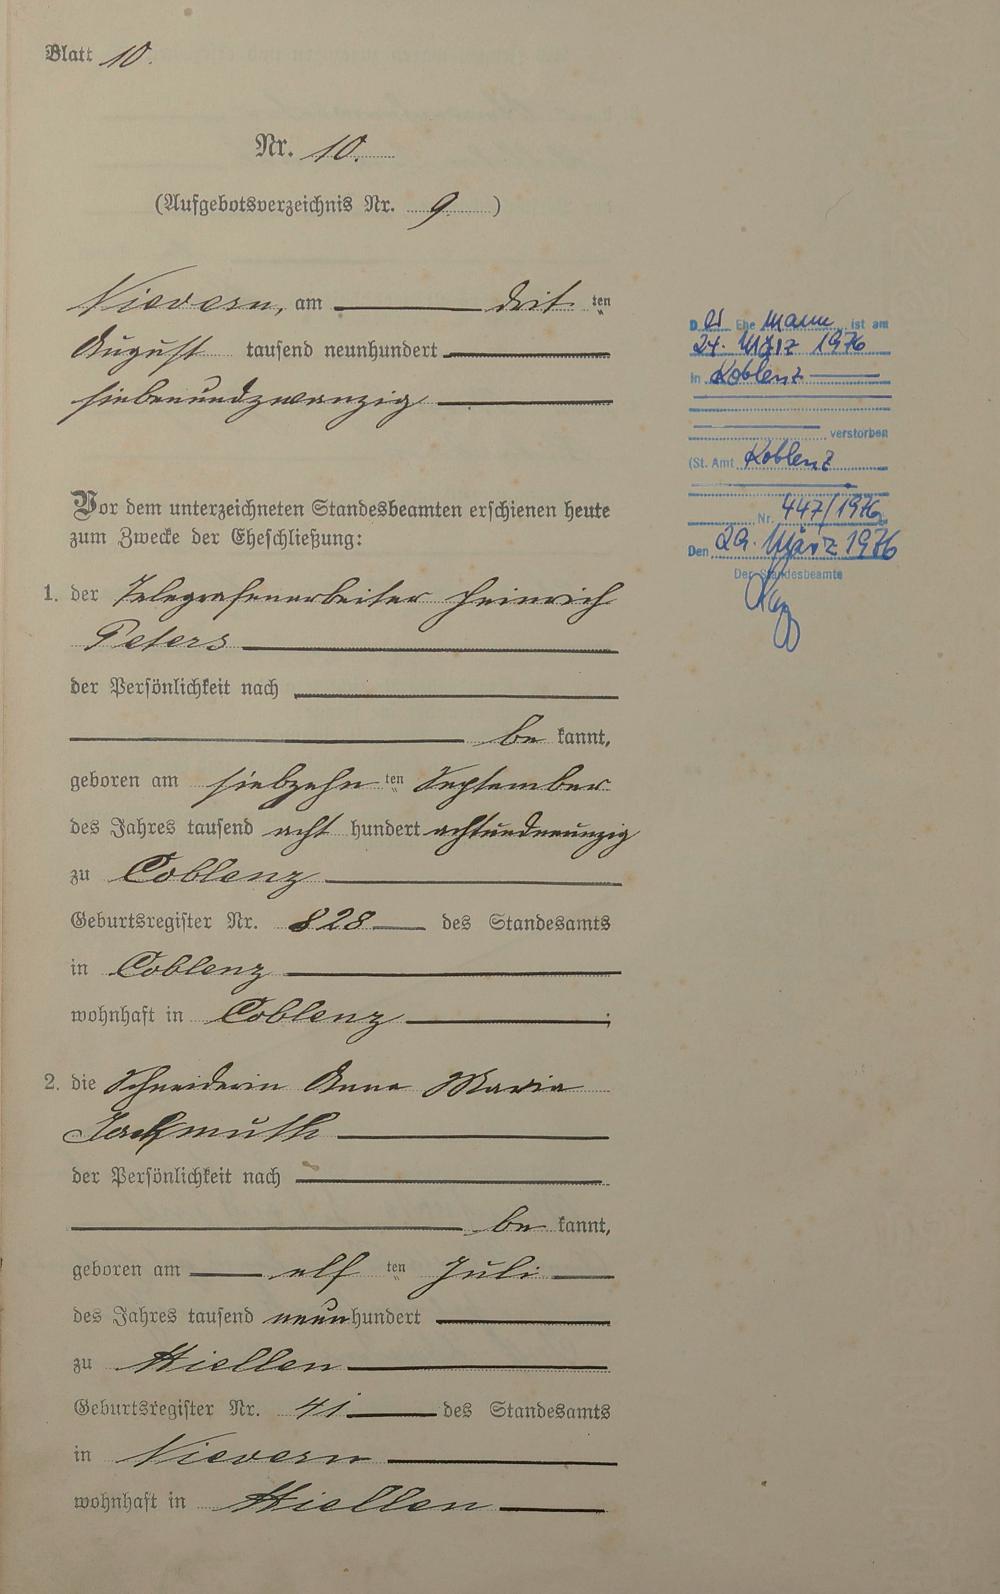 Blatt 10.
Nr. 10.
(Aufgebotsverzeichnis Nr. 9)
Nievern, am drit ten
August tausend neunhundert
siebenundzwanzig
Vor dem unterzeichneten Standesbeamten erschienen heute
zum Zwecke der Eheschließung:
1. der Telegrafenarbeiter Heinrich
Peters
der Persönlichkeit nach
be kannt,
geboren am siebzehn ten September
des Jahres tausend acht hundert achtundneunzig
zu Coblenz
Geburtsregister Nr. 828 des Standesamts
in Coblenz
wohnhaft in Coblenz ;
2. die Schneiderin Anna Maria
der Persönlichkeit nach
be kannt,
geboren am elf ten Juli
des Jahres tausend neunhundert
zu Miellen
Geburtsregister Nr. 41 des Standesamts
in Nievern
wohnhaft in Miellen
D er Ehe Mann ist am
24. März 1976
in Koblenz
verstorben
(St. Amt Koblenz
Nr. 447/1976)
Den 29. März 1976
Der Standesbeamte